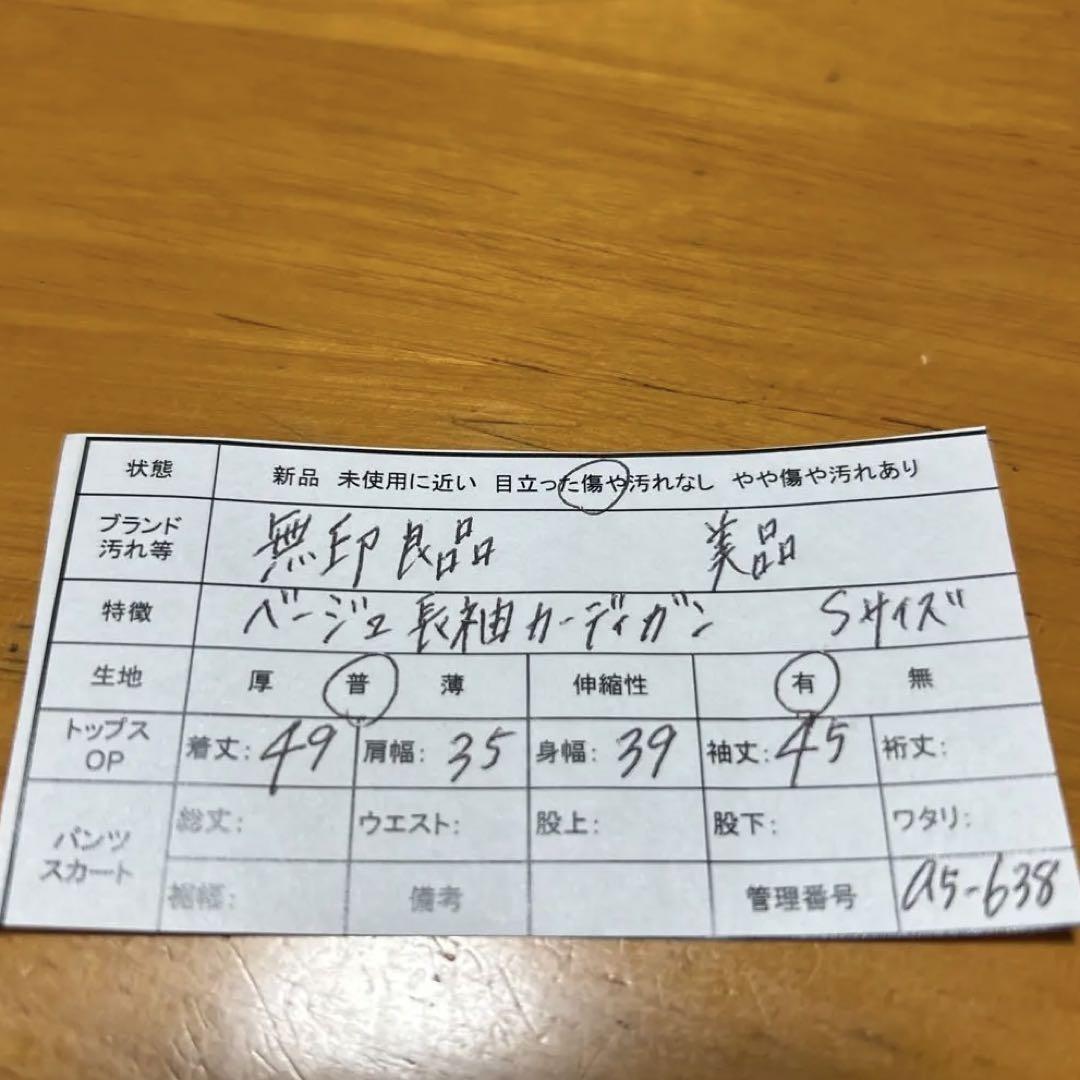 状態 新品 未使用に近い 目立った傷や汚れなし やや傷や汚れあり
ブランド 汚れ等 無印良品 美品
特徴 ベージュ 長袖カーディガン Sサイズ
生地 厚 普 薄 伸縮性 有 無
トップス OP 着丈: 49 肩幅: 35 身幅: 39 袖丈: 45 裄丈:
パンツ スカート 総丈: ウエスト: 股上: 股下: ワタリ:
裾幅: 備考 管理番号 a5-638